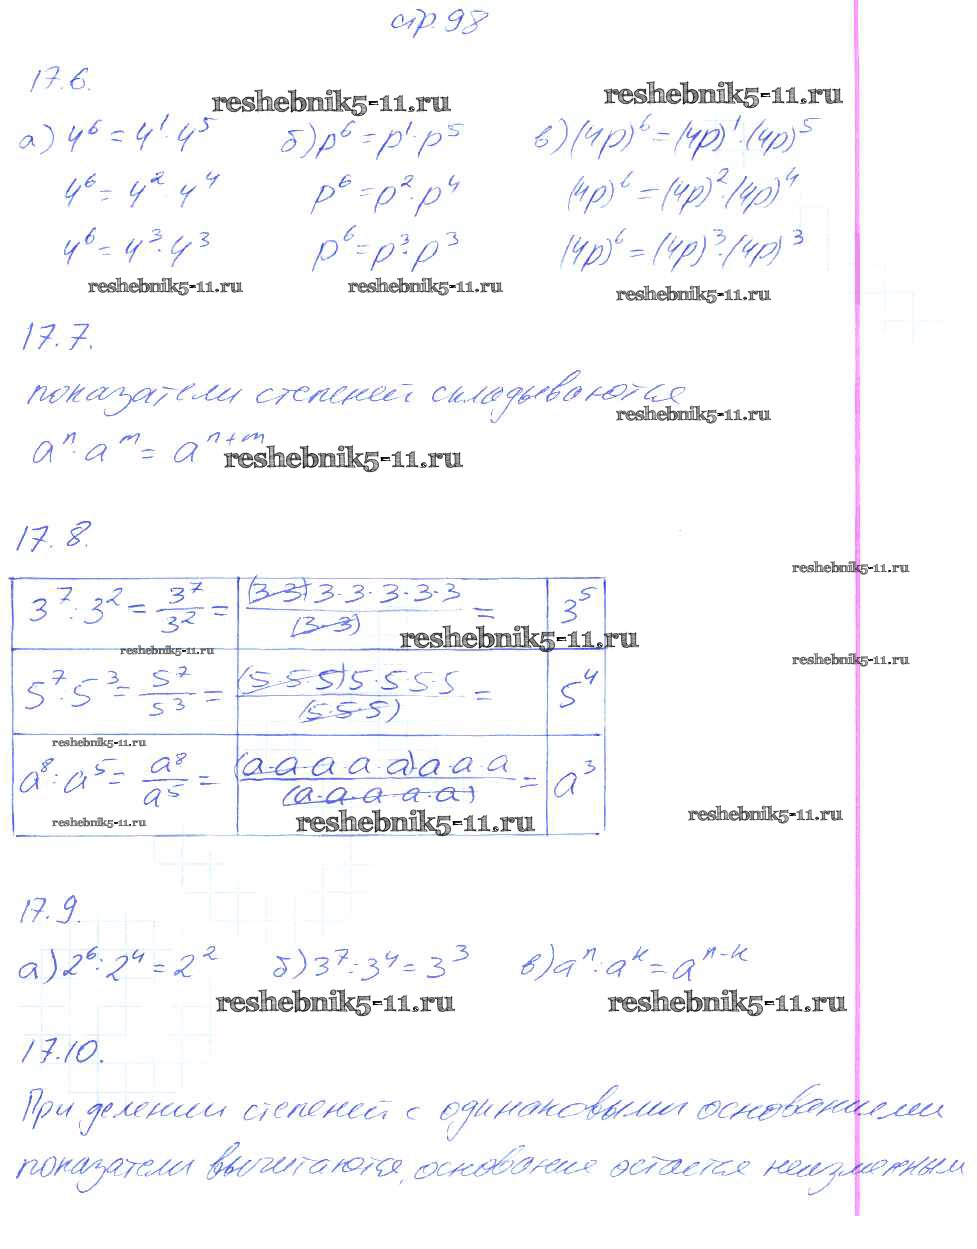 стр. 98
17.6.
reshebnik5-11.ru reshebnik5-11.ru
а) 4⁶ = 4¹ · 4⁵ б) p⁶ = p¹ · p⁵ в) (4p)⁶ = (4p)¹ · (4p)⁵
4⁶ = 4² · 4⁴ p⁶ = p² · p⁴ (4p)⁶ = (4p)² · (4p)⁴
4⁶ = 4³ · 4³ p⁶ = p³ · p³ (4p)⁶ = (4p)³ · (4p)³
reshebnik5-11.ru reshebnik5-11.ru reshebnik5-11.ru
17.7.
показатели степеней складываются
reshebnik5-11.ru
aⁿ · aᵐ = aⁿ⁺ᵐ
reshebnik5-11.ru
17.8.
reshebnik5-11.ru
3⁷ : 3² = 3⁷/3² = (3·3)3·3·3·3·3/(3·3) = 3⁵
reshebnik5-11.ru
reshebnik5-11.ru reshebnik5-11.ru
5⁷ : 5³ = 5⁷/5³ = (5·5·5)5·5·5·5/(5·5·5) = 5⁴
reshebnik5-11.ru
a⁸ : a⁵ = a⁸/a⁵ = (a·a·a·a·a)a·a·a/(a·a·a·a·a) = a³
reshebnik5-11.ru reshebnik5-11.ru reshebnik5-11.ru
17.9.
а) 2⁶ : 2⁴ = 2² б) 3⁷ : 3⁴ = 3³ в) aⁿ : aᵏ = aⁿ⁻ᵏ
reshebnik5-11.ru reshebnik5-11.ru
17.10.
При делении степеней с одинаковыми основаниями
показатели вычитаются, основание остается неизменным